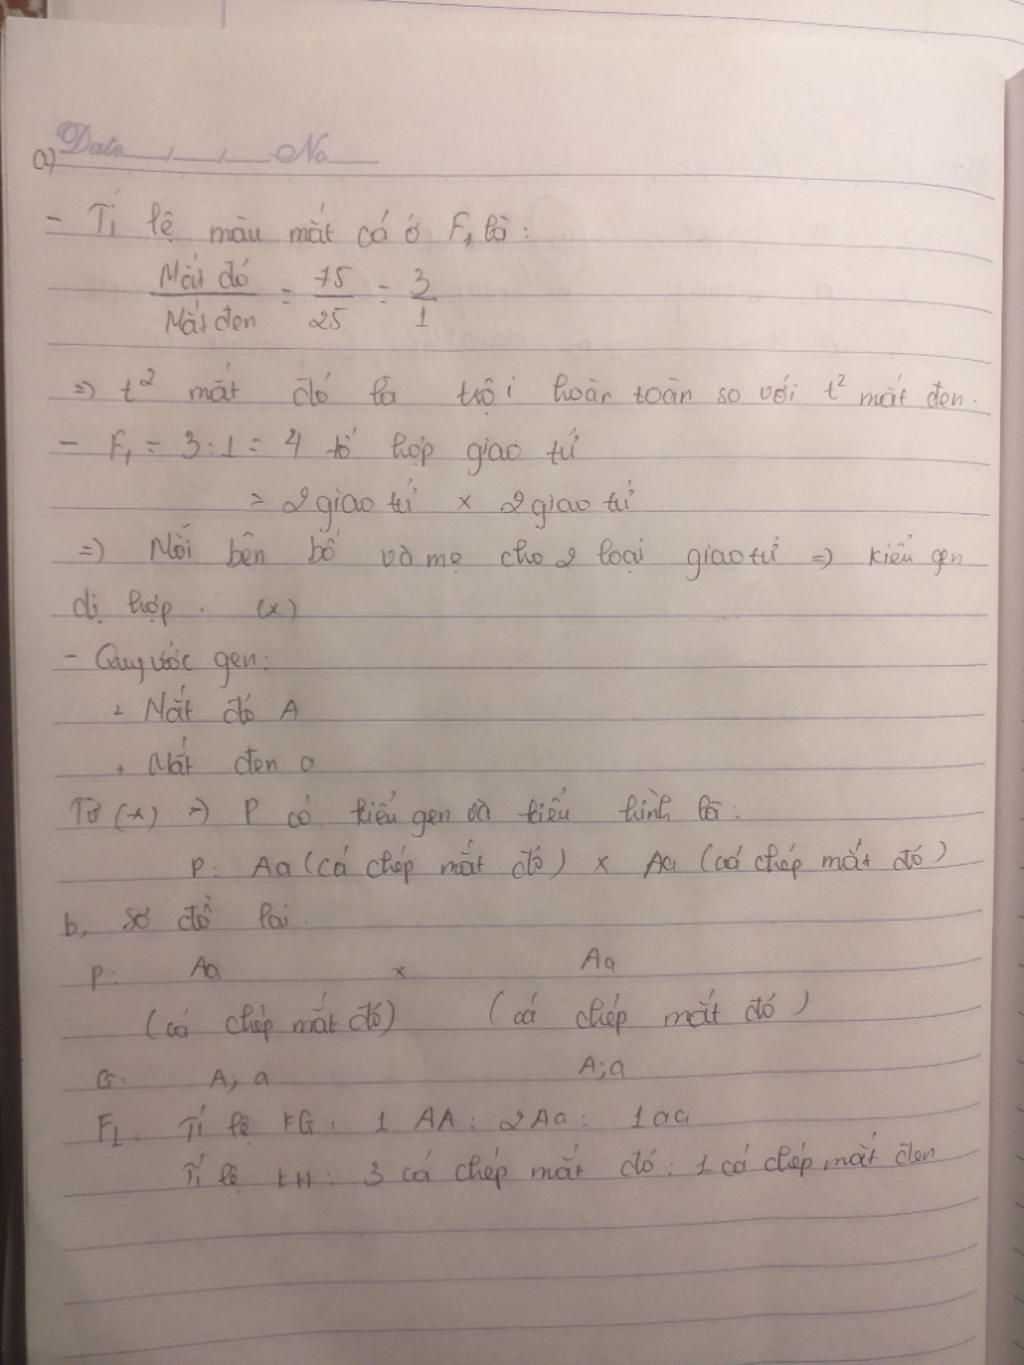 Date / / No
a)
- Tỉ lệ màu mắt cá ở F₁ là:
Mắt đỏ / Mắt đen = 75/25 = 3/1
=> t² mắt đỏ là trội hoàn toàn so với t² mắt đen.
- F₁ = 3:1 = 4 tổ hợp giao tử
= 2 giao tử x 2 giao tử
=> Mỗi bên bố và mẹ cho 2 loại giao tử => kiểu gen
dị hợp. (x)
- Quy ước gen:
+ Mắt đỏ A
+ Mắt đen a
Từ (x) => P có kiểu gen và kiểu hình là:
P: Aa (cá chép mắt đỏ) x Aa (cá chép mắt đỏ)
b, Sơ đồ lai.
P: Aa x Aa
(cá chép mắt đỏ) (cá chép mắt đỏ)
G: A; a A; a
F₁: Tỉ lệ KG: 1 AA : 2Aa : 1aa
Tỉ lệ KH: 3 cá chép mắt đỏ : 1 cá chép mắt đen